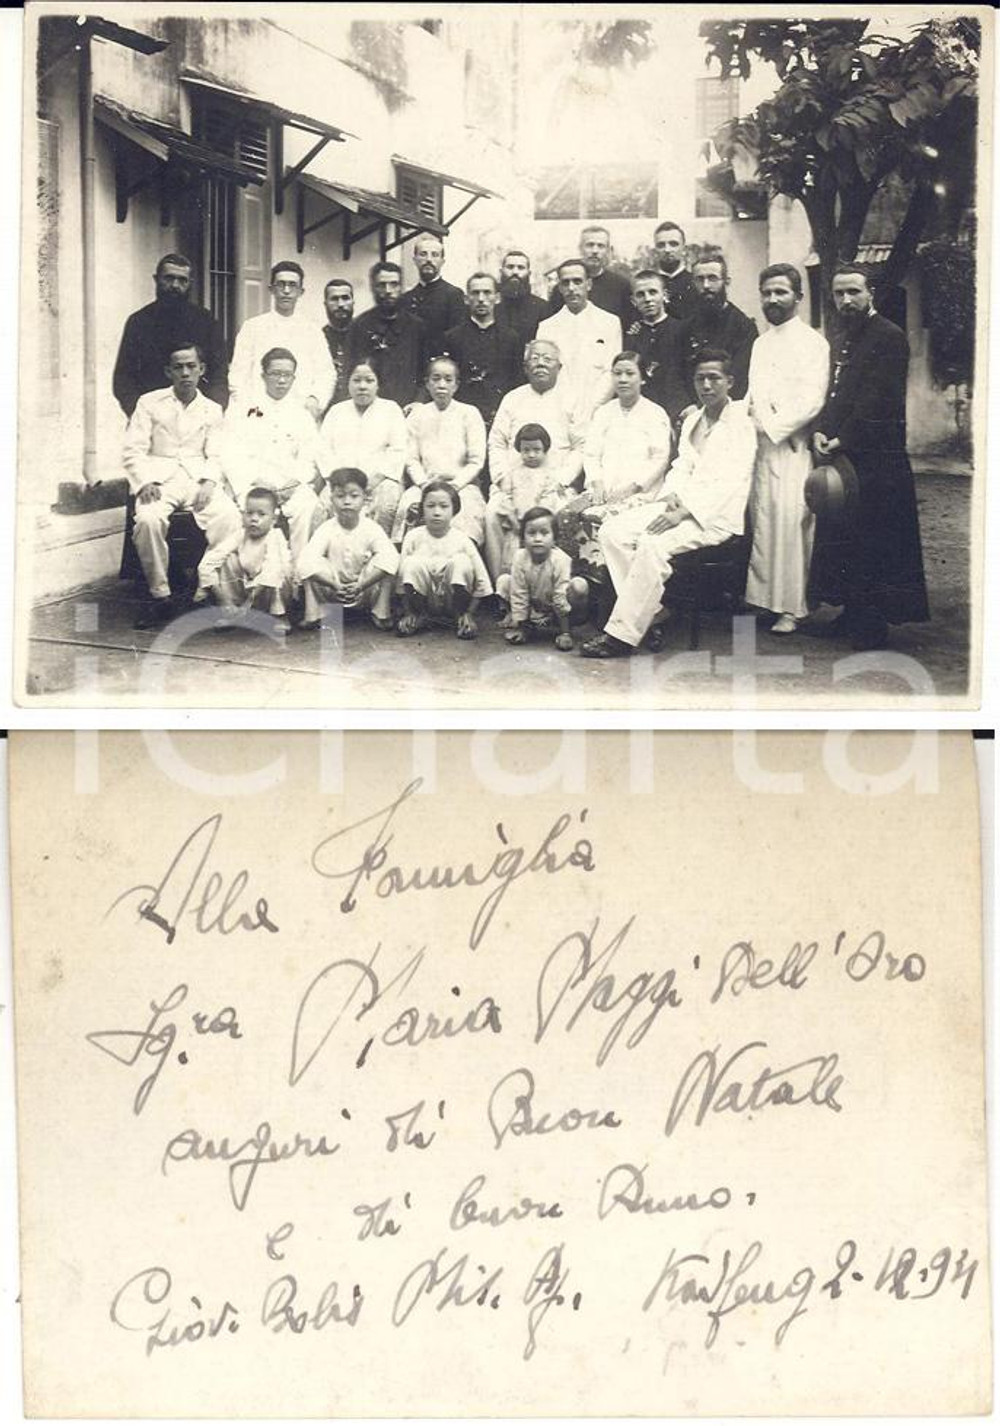 iCharta
Alla Famiglia
Sg.ra Maria Maggi Dell'Oro
auguri di Buon Natale
e di buon Anno.
Giov. Mis. Ap. Kaifeng 2-12-934